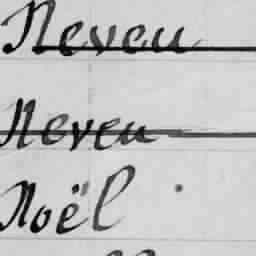 Neveu
Neveu
Noël